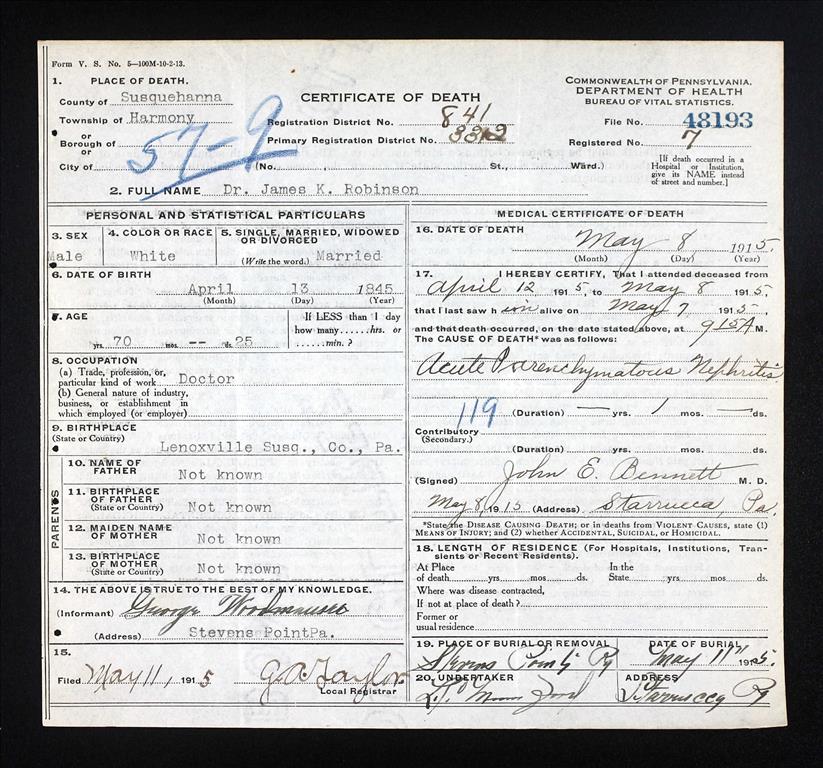 Form V. S. No. 5—100M-10-2-13.
1. PLACE OF DEATH.
County of Susquehanna
Township of Harmony
or
Borough of
or
City of
57-9
CERTIFICATE OF DEATH
Registration District No. 841
Primary Registration District No.
(No. , St., Ward.)
COMMONWEALTH OF PENNSYLVANIA.
DEPARTMENT OF HEALTH
BUREAU OF VITAL STATISTICS.
File No. 48193
Registered No. 7
[If death occurred in a
Hospital or Institution,
give its NAME instead
of street and number.]
2. FULL NAME Dr. James K. Robinson
PERSONAL AND STATISTICAL PARTICULARS
3. SEX
Male
4. COLOR OR RACE
White
5. SINGLE, MARRIED, WIDOWED
OR DIVORCED
(Write the word.) Married
6. DATE OF BIRTH
April 13 1845
(Month) (Day) (Year)
7. AGE
70 yrs. -- mos. 25 ds.
If LESS than 1 day
how many......hrs. or
......min. ?
8. OCCUPATION
(a) Trade, profession, or,
particular kind of work Doctor
(b) General nature of industry,
business, or establishment in
which employed (or employer)
9. BIRTHPLACE
(State or Country)
Lenoxville Susq., Co., Pa.
PARENTS
10. NAME OF
FATHER
Not known
11. BIRTHPLACE
OF FATHER
(State or Country)
Not known
12. MAIDEN NAME
OF MOTHER
Not known
13. BIRTHPLACE
OF MOTHER
(State or Country)
Not known
14. THE ABOVE IS TRUE TO THE BEST OF MY KNOWLEDGE.
(Informant) George
(Address) Stevens PointPa.
15.
Filed May 11, 1915 G.A. Taylor
Local Registrar
MEDICAL CERTIFICATE OF DEATH
16. DATE OF DEATH
May 8 1915.
(Month) (Day) (Year)
17. I HEREBY CERTIFY, That I attended deceased from
April 12 1915, to May 8 1915,
that I last saw him alive on May 7 1915,
and that death occurred, on the date stated above, at 915A M.
The CAUSE OF DEATH* was as follows:
Acute Parenchymatous Nephritis
119
(Duration) — yrs. 1 mos. — ds.
Contributory
(Secondary.)
(Duration) yrs. mos. ds.
(Signed) John E. Bennett M. D.
May 8, 1915 (Address) Starrucca, Pa.
*State the DISEASE CAUSING DEATH; or in deaths from VIOLENT CAUSES, state (1)
MEANS OF INJURY; and (2) whether ACCIDENTAL, SUICIDAL, or HOMICIDAL.
18. LENGTH OF RESIDENCE (For Hospitals, Institutions, Tran-
sients or Recent Residents).
At Place
of death......yrs.......mos.......ds.
In the
State......yrs.......mos.......ds.
Where was disease contracted,
If not at place of death?
Former or
usual residence
19. PLACE OF BURIAL OR REMOVAL
Stevens Point Pa
DATE OF BURIAL
May 11th 1915.
20. UNDERTAKER
ADDRESS
Starrucca Pa